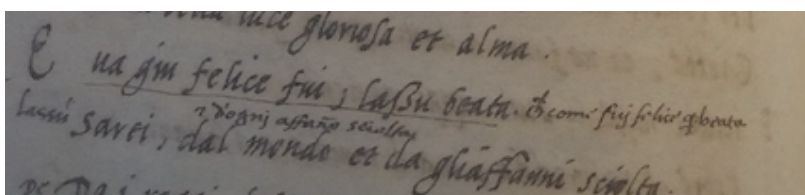 luce gloriosa et alma.
E ua felice fui, laßu beata. come fuj felice beata
lassù d'ognj affaño sciolta
Sarei, dal mondo et da gliaffanni sciolta.